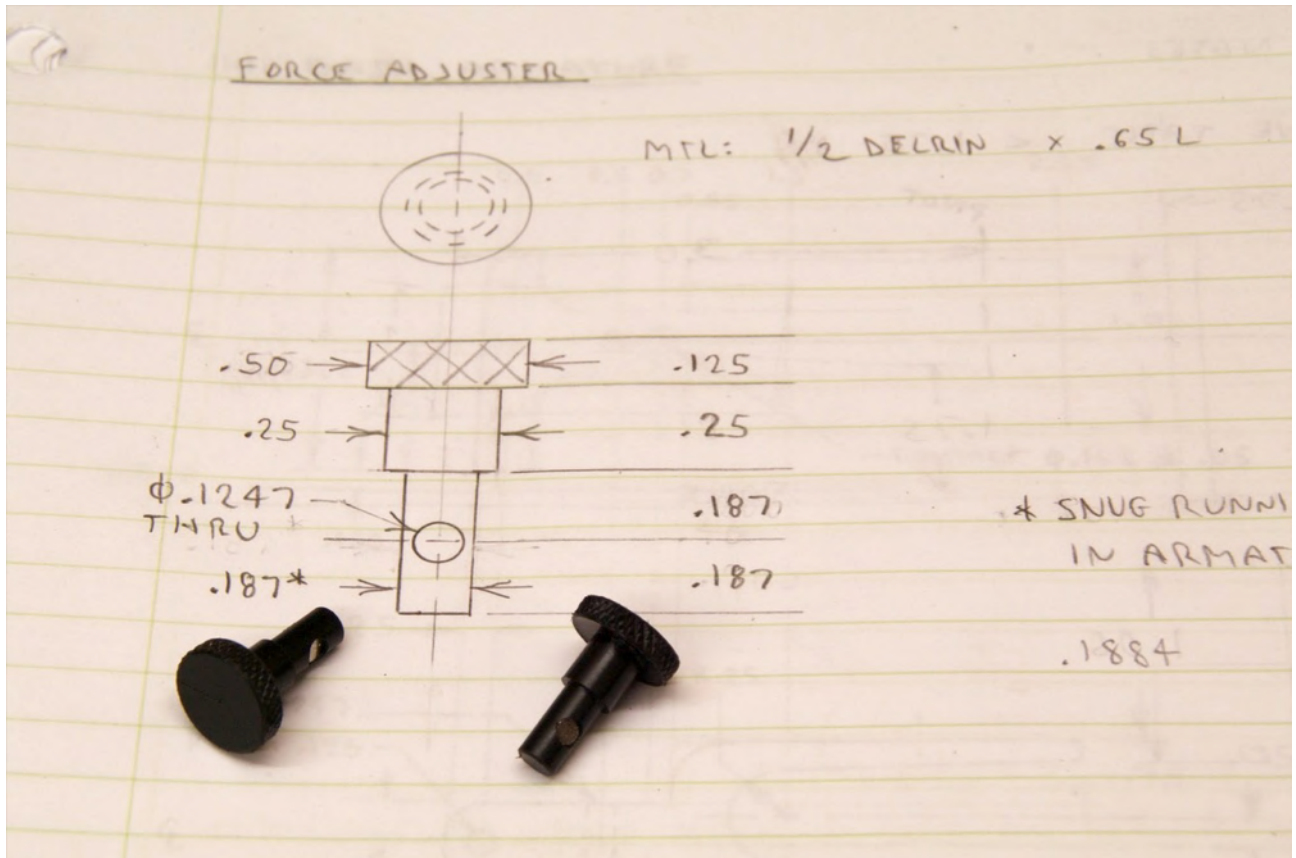 FORCE ADJUSTER
MTL: 1/2 DELRIN x .65 L
.50 .125
.25 .25
Φ.1247 .187
THRU *
.187* .187
* SNUG RUNNI
IN ARMAT
.1884